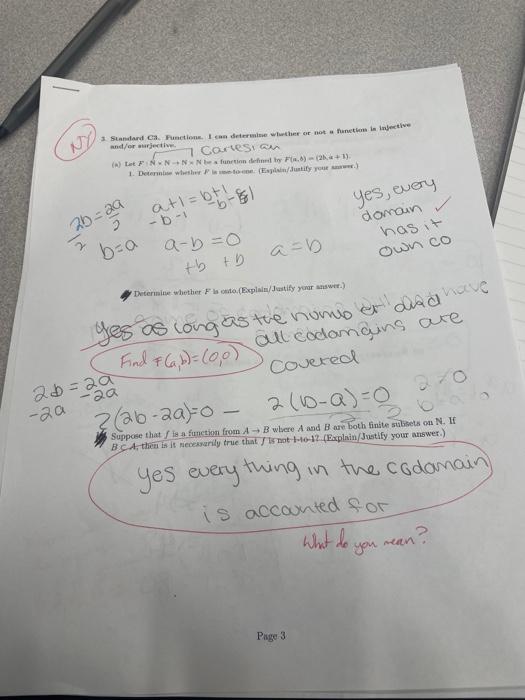 NY
3. Standard C3. Functions. I can determine whether or not a function is injective
and/or surjective.
Cartesian
(a) Let F : N × N → N × N be a function defined by F(a, b) = (2b, a + 1).
1. Determine whether F is one-to-one. (Explain/Justify your answer.)
2b = 2a
2 2
b=a
a+1 = b+1
-b-1 -b-1
a-b = 0
+b +b
a=b
yes, every
domain ✓
has it
own co
Determine whether F is onto.(Explain/Justify your answer.)
yes as long as the
have
all codomains are
covered
Find F(a,b)=(0,0)
2b = 2a
-2a -2a
2(2b-2a)=0 -
2(b-a)=0
2 2
2≠0
Suppose that f is a function from A → B where A and B are both finite subsets on N. If
B ⊂ A, then is it necessarily true that f is not 1-to-1? (Explain/Justify your answer.)
yes every thing in the codomain
is accounted for
What do you mean?
Page 3